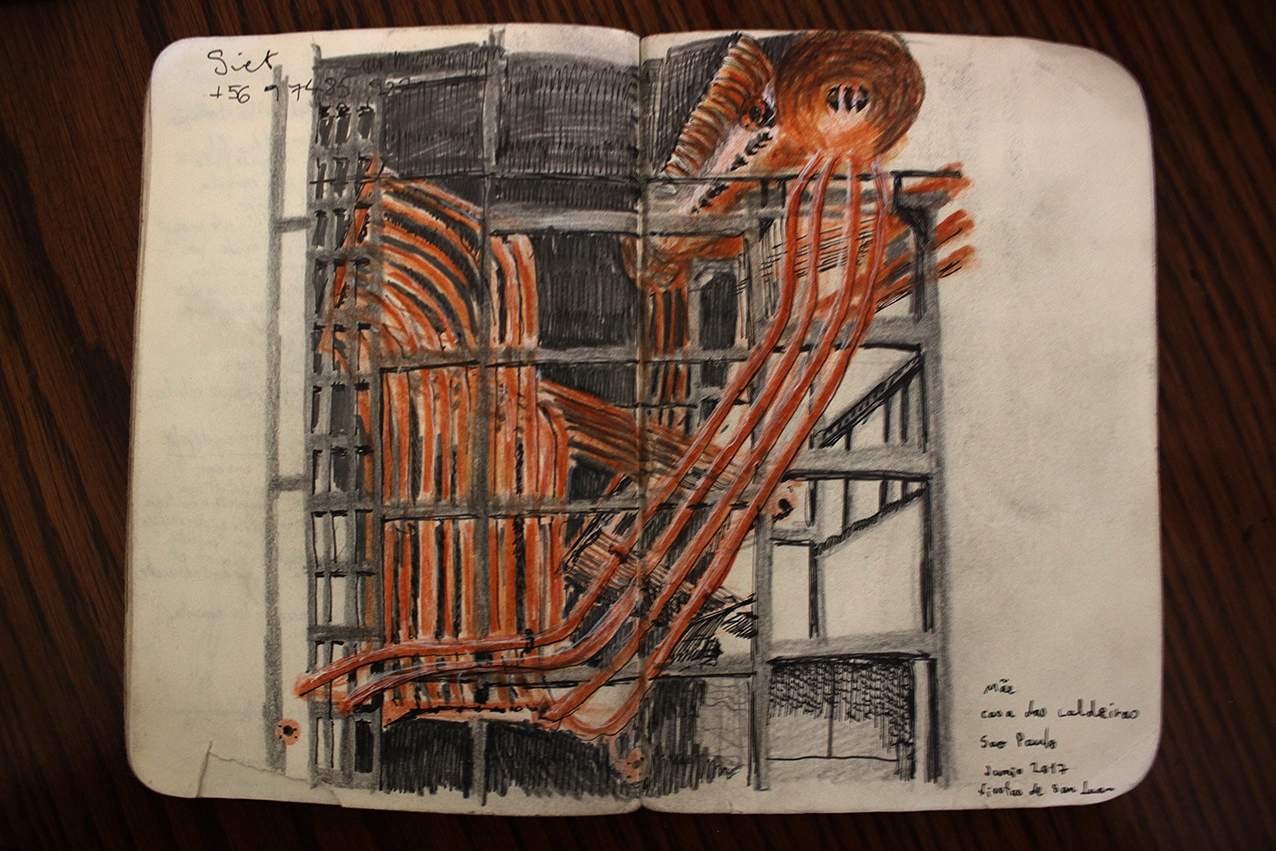 Siet
+56 9 7485
Mãe
casa das caldeiras
Sao Paulo
Junio 2017
fiestas de San Juan